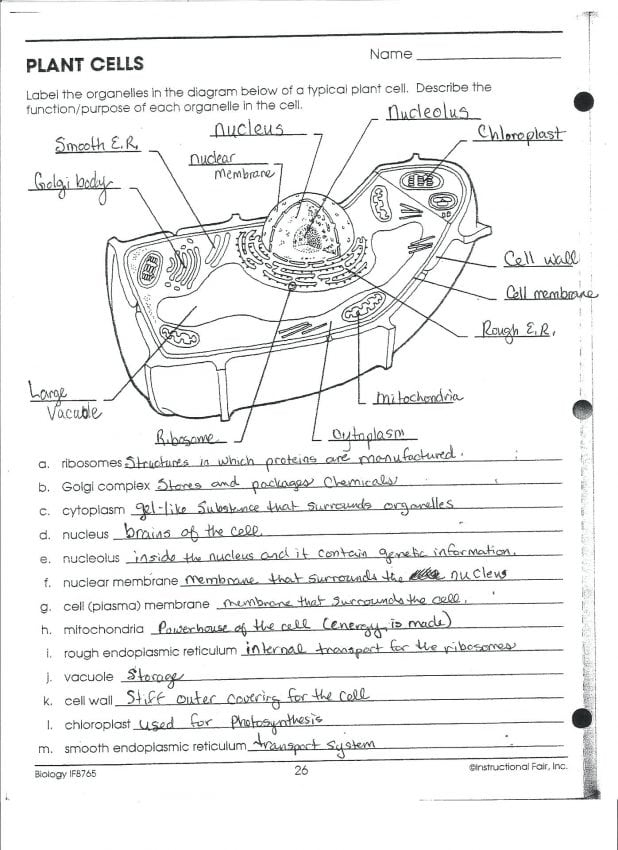 Name
PLANT CELLS
Label the organelles in the diagram below of a typical plant cell. Describe the
function/purpose of each organelle in the cell.
Nucleolus
Nucleus
Chloroplast
Smooth E.R.
nuclear
membrane
Golgi body
Cell wall
Cell membrane
Rough E.R.
Large
Vacuole
Mitochondria
Ribosome
Cytoplasm
a. ribosomes Structures in which proteins are manufactured.
b. Golgi complex Stores and packages Chemicals
c. cytoplasm gel-like Substance that surrounds organelles
d. nucleus brains of the cell.
e. nucleolus inside the nucleus and it contain genetic information.
f. nuclear membrane membrane that surrounds the nucleus
g. cell (plasma) membrane membrane that surrounds the cell.
h. mitochondria Powerhouse of the cell (energy is made)
i. rough endoplasmic reticulum internal transport for the ribosomes
j. vacuole Storage
k. cell wall Stiff outer covering for the cell
l. chloroplast used for Photosynthesis
m. smooth endoplasmic reticulum transport system
Biology IF8765
26
©Instructional Fair, Inc.